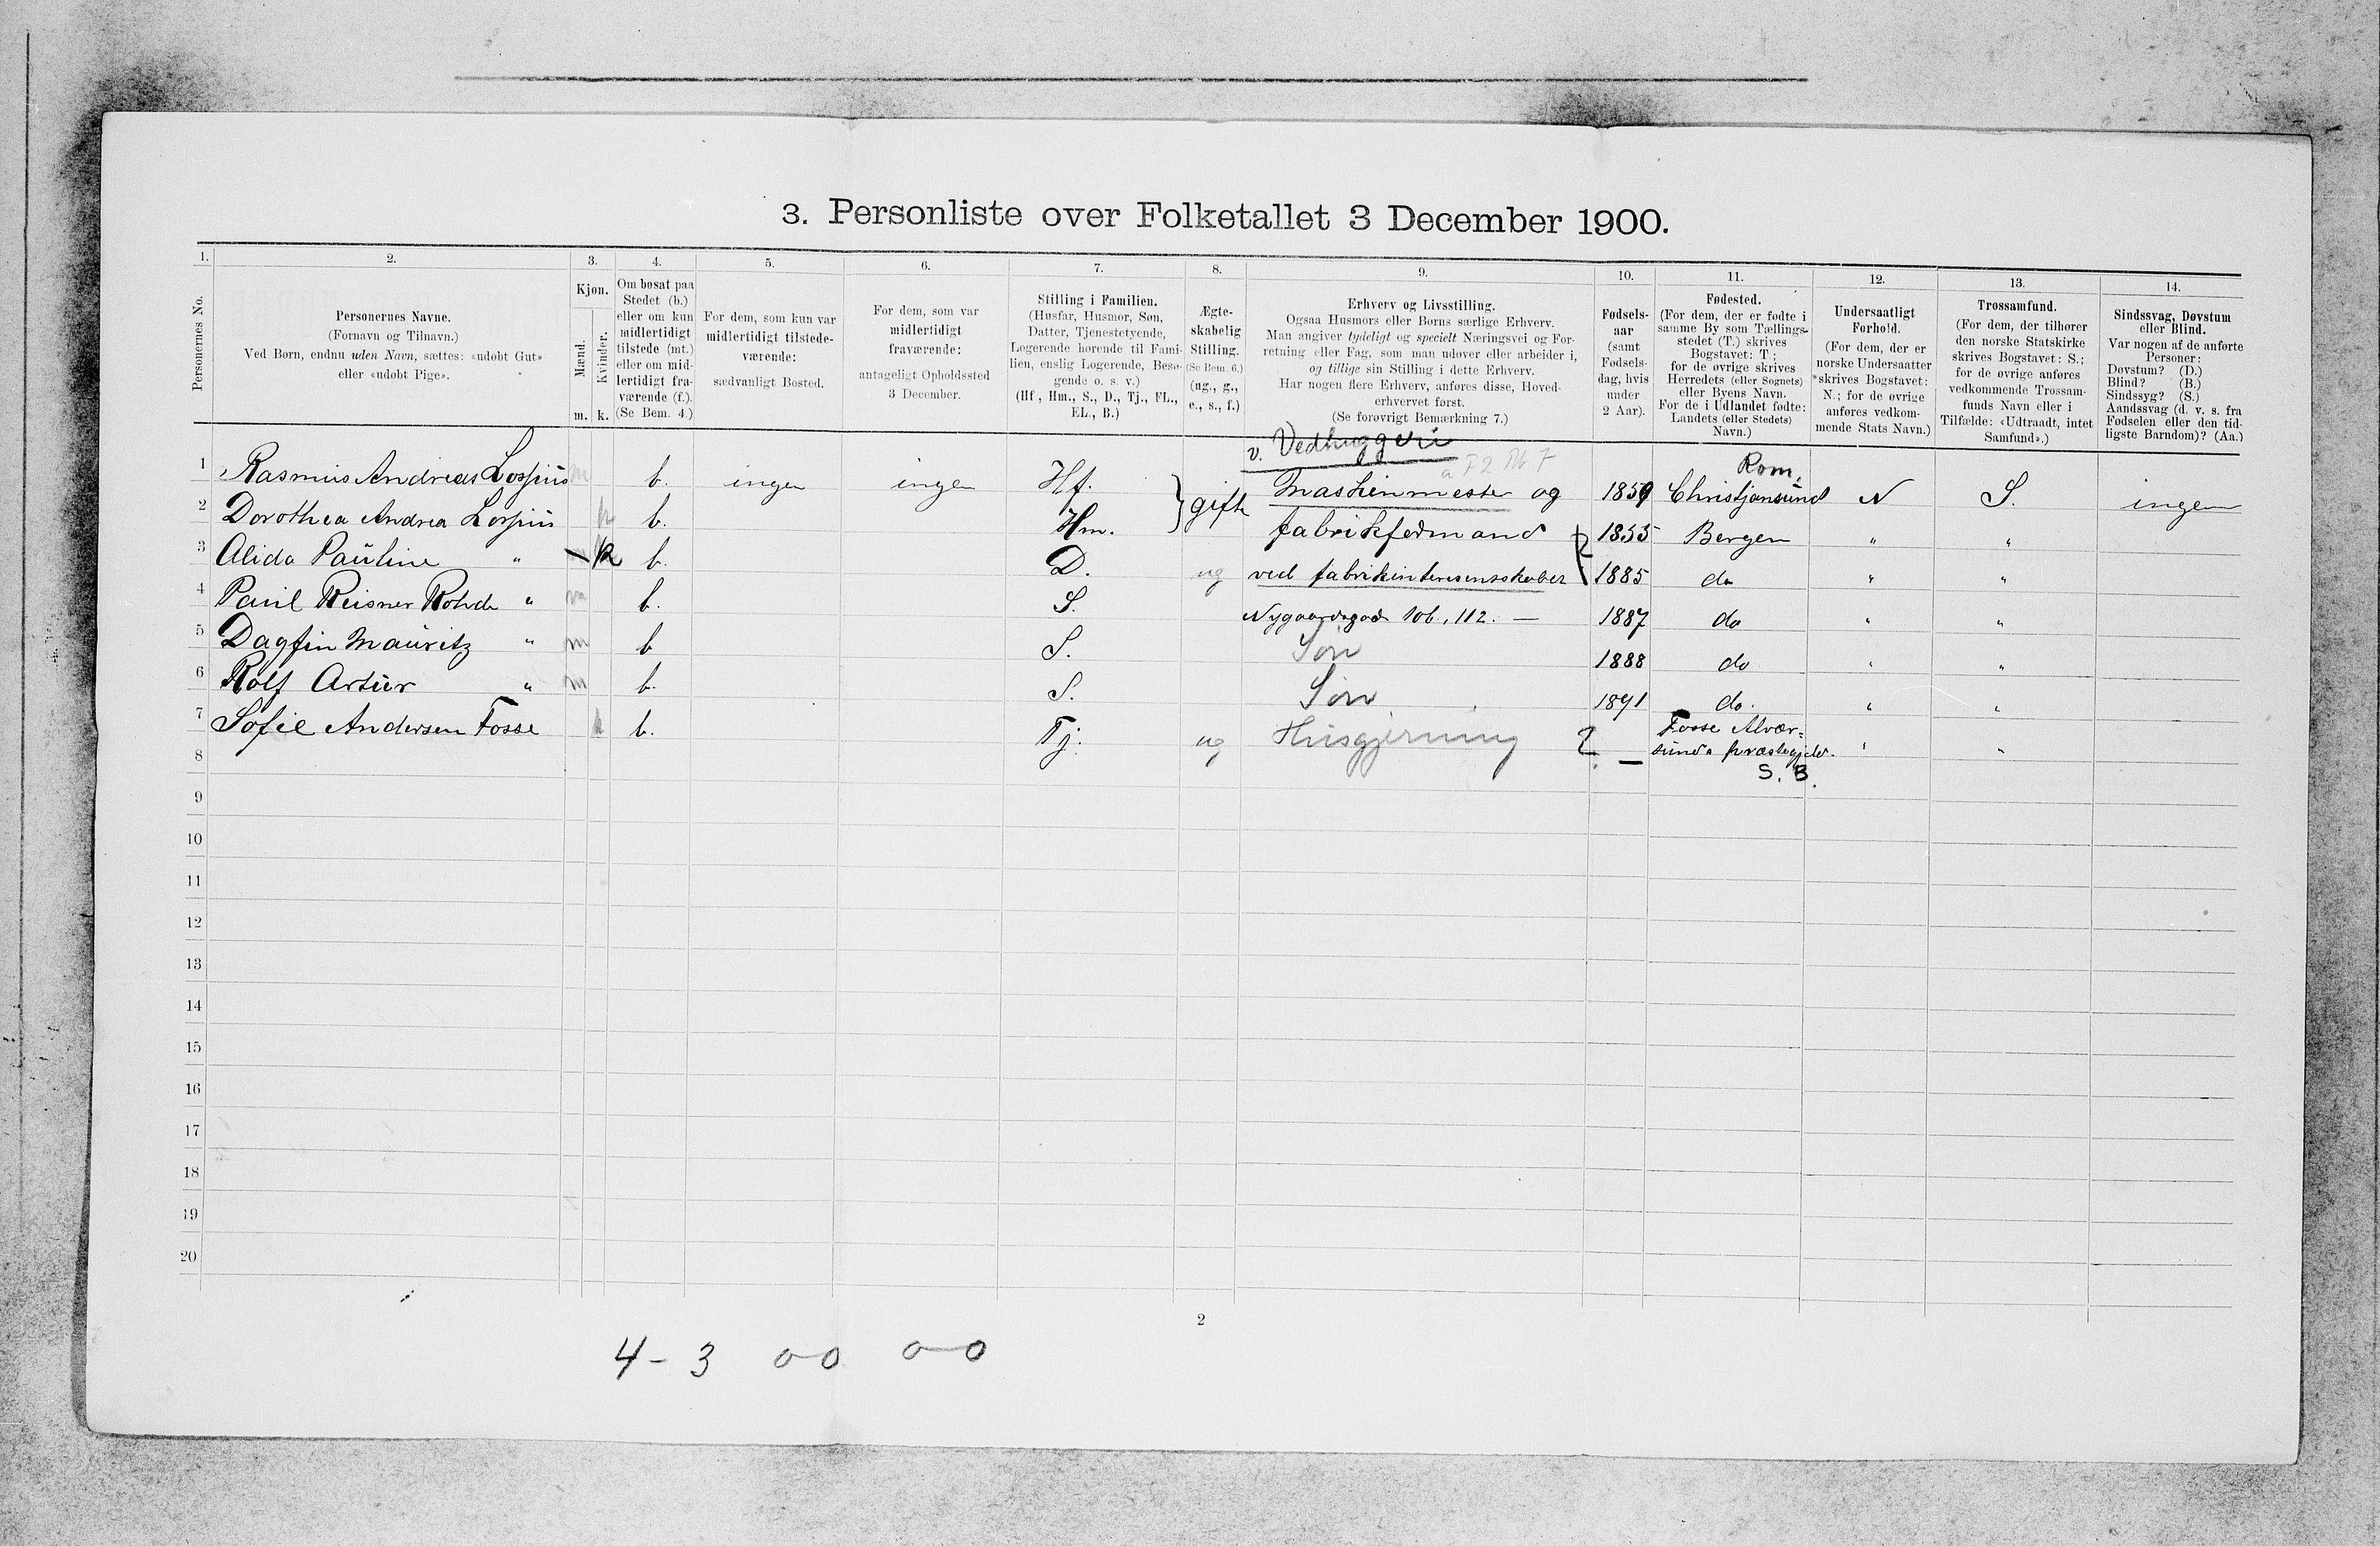 3. Personliste over Folketallet 3 December 1900.
1. 2. 3. 4. 5. 6. 7. 8. 9. 10. 11. 12. 13. 14.
Personernes No.
Personernes Navne.
(Fornavn og Tilnavn.)
Ved Børn, endnu uden Navn, sættes: «udøbt Gut»
eller «udøbt Pige».
Kjøn.
Mænd.
Kvinder.
m. k.
Om bosat paa
Stedet (b.)
eller om kun
midlertidigt
tilstede (mt.)
eller om mid-
lertidigt fra-
værende (f.).
(Se Bem. 4.)
For dem, som kun var
midlertidigt tilstede-
værende:
sædvanligt Bosted.
For dem, som var
midlertidigt
fraværende:
antageligt Opholdssted
3 December.
Stilling i Familien.
(Husfar, Husmor, Søn,
Datter, Tjenestetyende,
Logerende hørende til Fami-
lien, enslig Logerende, Besø-
gende o. s. v.)
(Hf, Hm., S., D., Tj., FL.,
EL., B.)
Ægte-
skabelig
Stilling.
(Se Bem. 6.)
(ug., g.,
e., s., f.)
Erhverv og Livsstilling.
Ogsaa Husmors eller Børns særlige Erhverv.
Man angiver tydeligt og specielt Næringsvei og For-
retning eller Fag, som man udøver eller arbeider i,
og tillige sin Stilling i dette Erhverv.
Har nogen flere Erhverv, anføres disse, Hoved-
erhvervet først.
(Se forøvrigt Bemærkning 7.)
Fødsels-
aar
(samt
Fødsels-
dag, hvis
under
2 Aar).
Fødested.
(For dem, der er fødte i
samme By som Tællings-
stedet (T.) skrives
Bogstavet: T.;
for de øvrige skrives
Herredets (eller Sognets)
eller Byens Navn.
For de i Udlandet fødte:
Landets (eller Stedets)
Navn.)
Undersaatligt
Forhold.
(For dem, der er
norske Undersaatter
skrives Bogstavet:
N.; for de øvrige
anføres vedkom-
mende Stats Navn.)
Trossamfund.
(For dem, der tilhører
den norske Statskirke
skrives Bogstavet: S.;
for de øvrige anføres
vedkommende Trossam-
funds Navn eller i
Tilfælde: «Udtraadt, intet
Samfund».)
Sindssvag, Døvstum
eller Blind.
Var nogen af de anførte
Personer:
Døvstum? (D.)
Blind? (B.)
Sindssyg? (S.)
Aandssvag (d. v. s. fra
Fødselen eller den tid-
ligste Barndom)? (Aa.)
v. Vedhuggeri
Rom.
1 Rasmus Andreas m b. ingen ingen Hf. } gift Maskinmester og 1859 Christjansund N S. ingen
2 Dorothea Andrea k b. Hm. fabrikformand 1855 Bergen " "
3 Alida Pauline " k b. D. ug ved 1885 do " "
4 Paul Reisner Rohde " m b. S. Nygaardsgad 106, 112. — 1887 do " "
5 Dagfin Mauritz " m b S. Søn 1888 do " "
6 Rolf Artur " m b. S. Søn 1891 do. " "
7 Sofie Andersen Fosse k b. Tj. ug Husgjerning ? — Fosse Alvær-
8 sunds præstegjeld. " "
S. B.
9
10
11
12
13
14
15
16
17
18
19
20
2
4 - 3 0-0 0-0